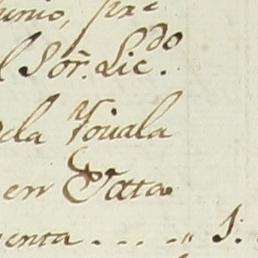 unio, pre
l Sor. Licdo.
dela Touala
en Tata
enta . . . . 1: